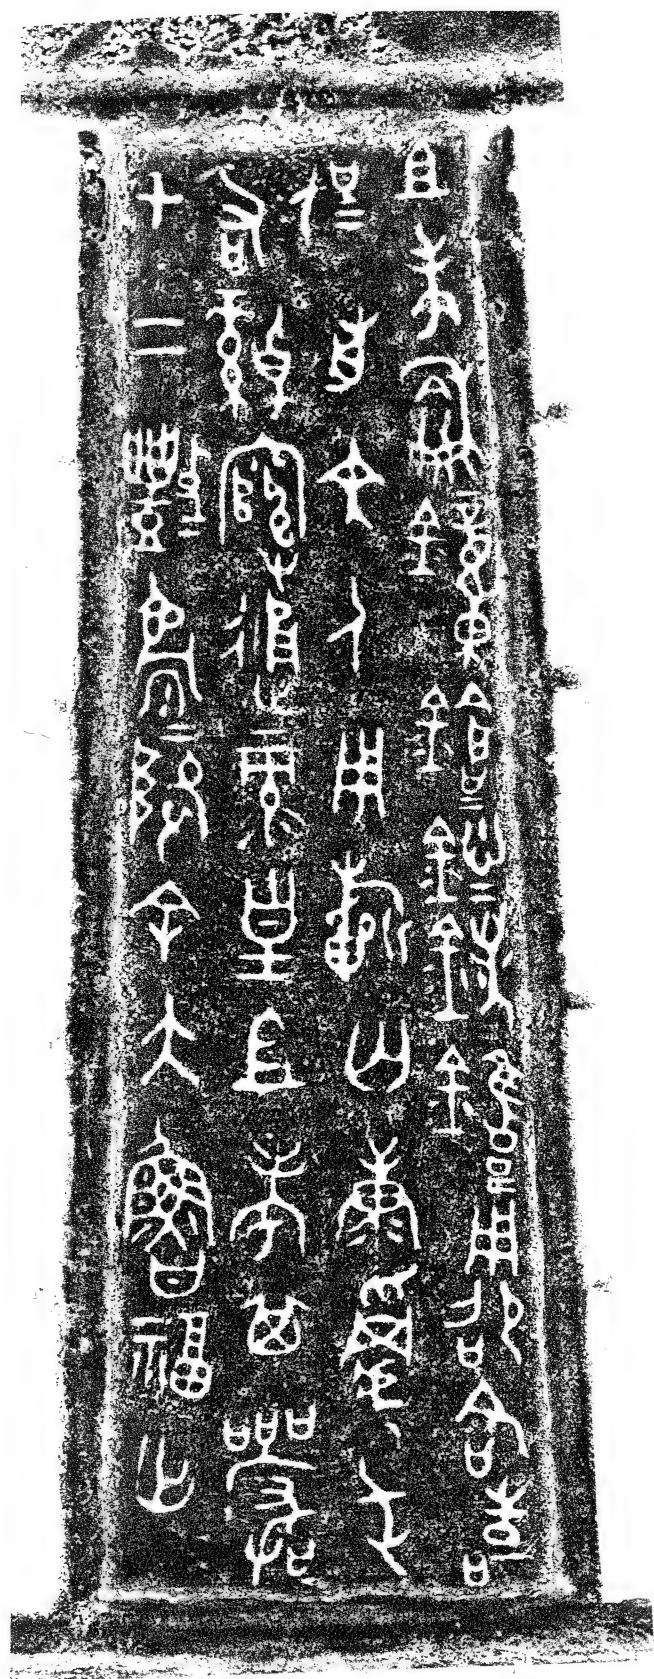 且考龢鐘鎗=鏓=鉠=鏞=用卲各喜
侃前文人用𣄨匄康屯
右綽綰通彔皇且考其嚴
才下數=降余大魯福亡